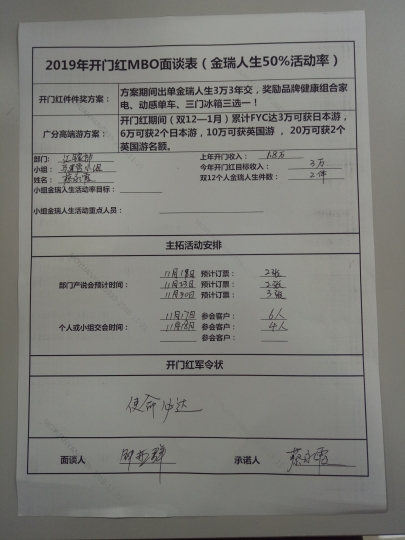 2019年开门红MBO面谈表（金瑞人生50%活动率）
开门红件件奖方案： 方案期间出单金瑞人生3万3年交，奖励品牌健康组合家电、动感单车、三门冰箱三选一！
广分高端游方案： 开门红期间（双12—1月）累计FYC达3万可获日本游，6万可获2个日本游，10万可获英国游 ，20万可获2个英国游名额。
部门： 上年开门收入： 6.8万
小组： 今年开门红目标收入： 3万
姓名： 蔡永霞 双12个人金瑞人生件数： 2件
小组金瑞人生活动率目标：
小组金瑞人生活动重点人员：
主拓活动安排
部门产说会预计时间： 11月18日 预计订票： 2张
11月23日 预计订票： 2张
11月30日 预计订票： 3张
个人或小组交会时间： 11月17日 参会客户： 6人
11月18日 参会客户： 4人
参会客户：
开门红军令状
使命必达
面谈人 承诺人 蔡永霞